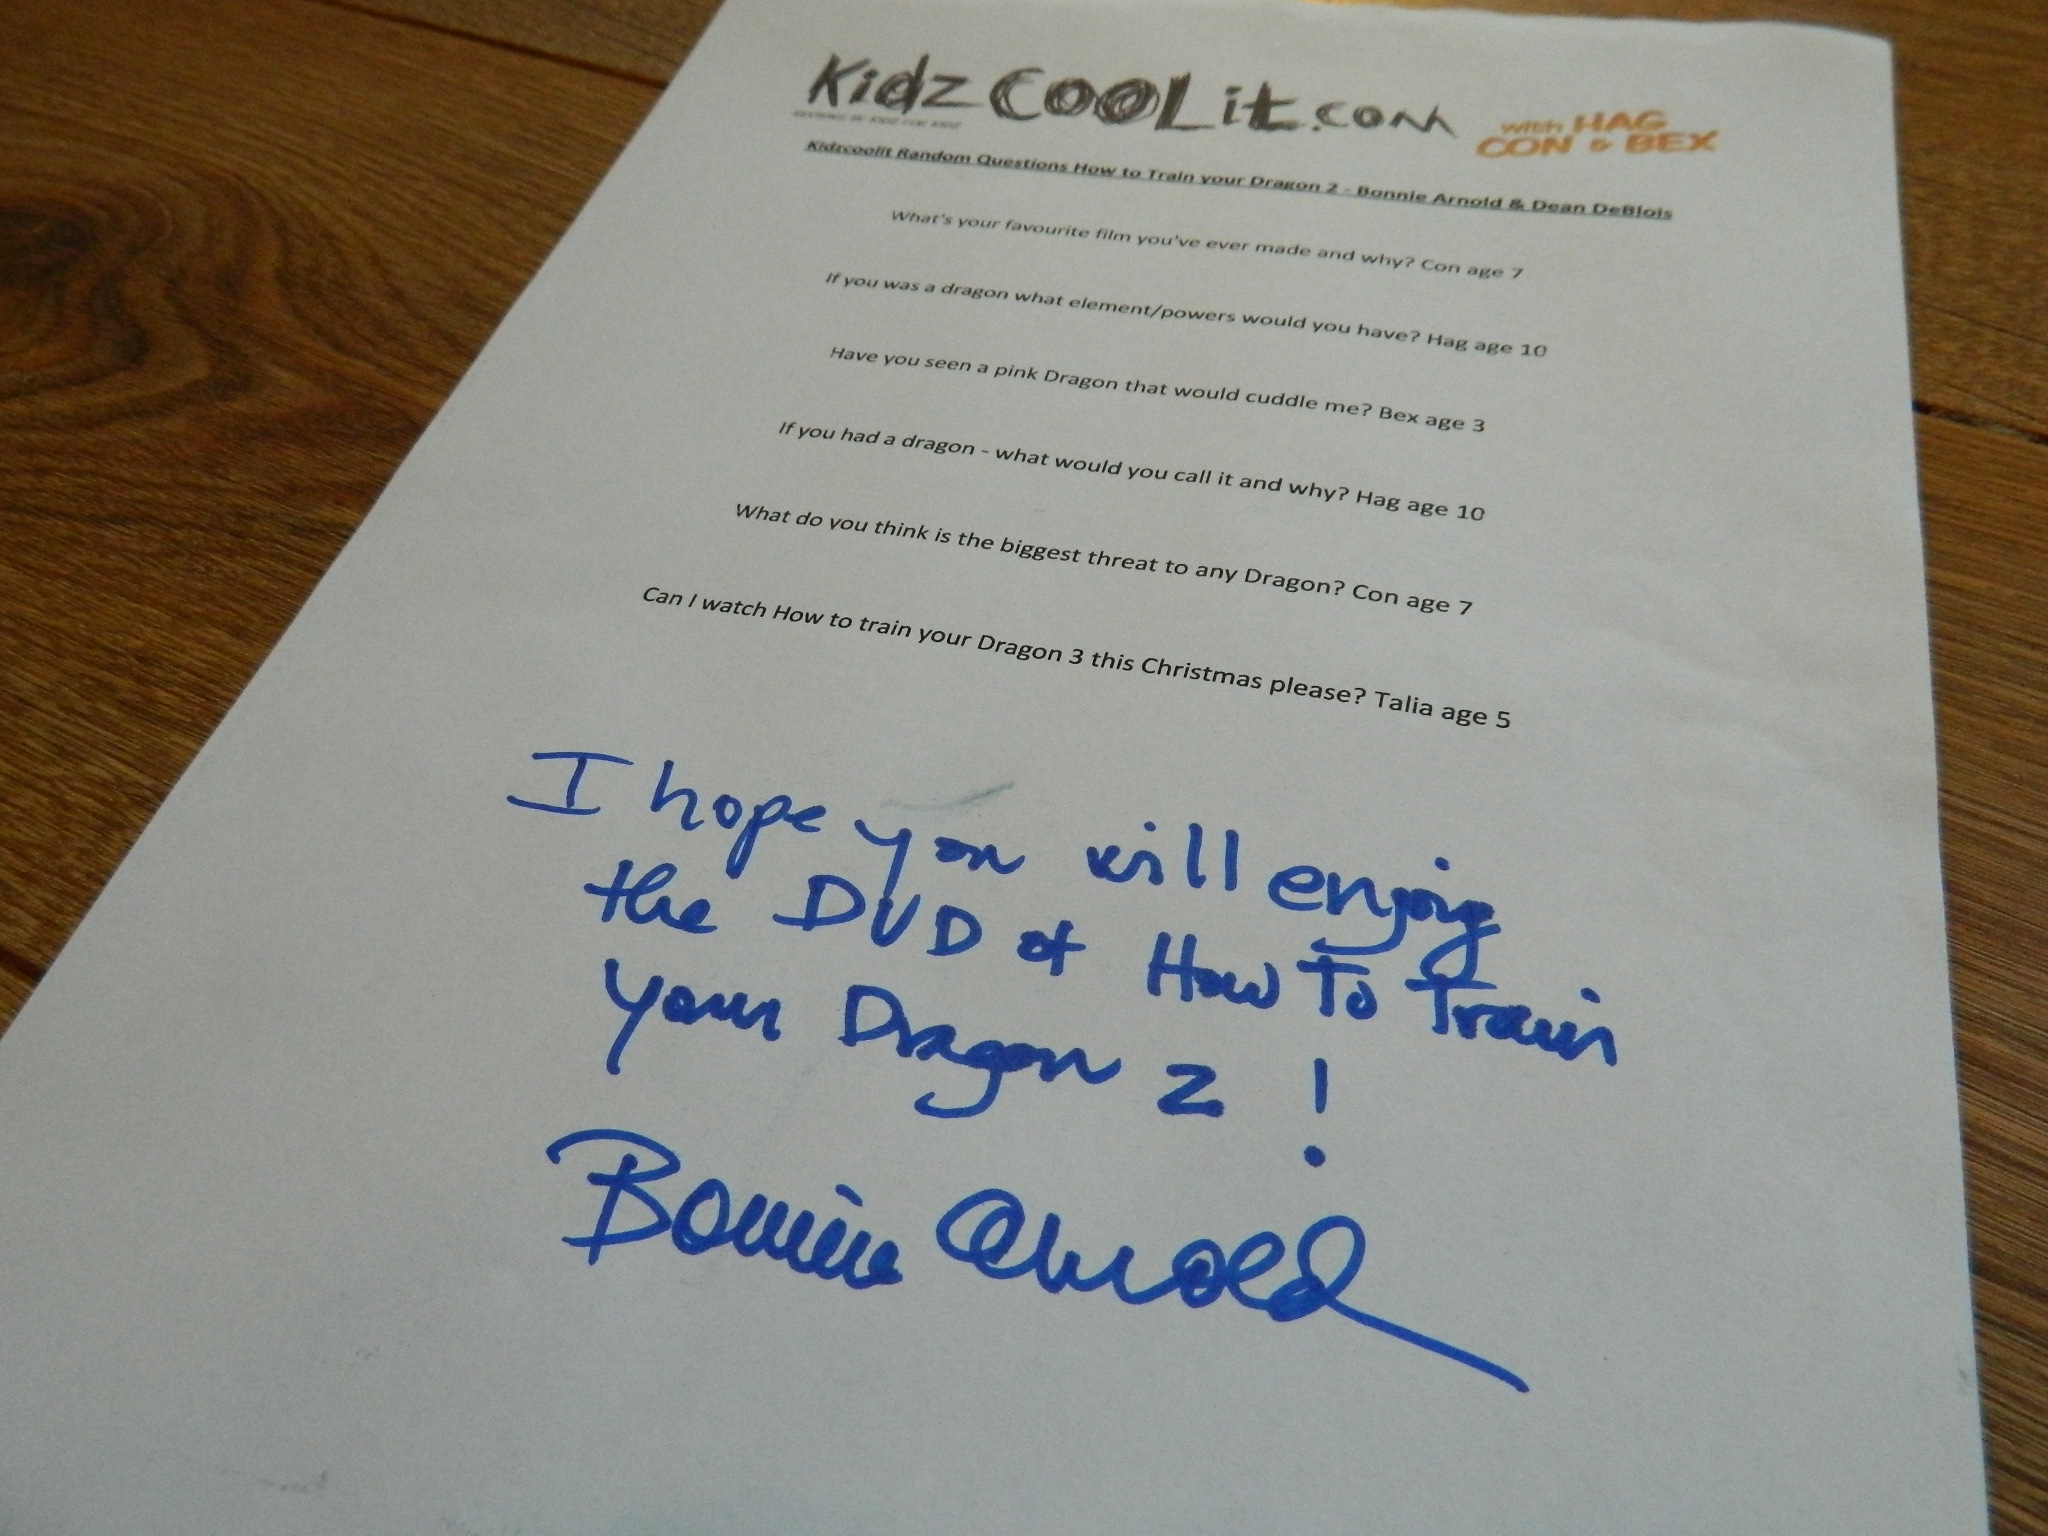 Kidz COOLit.com
with HAG
CON & BEX
Kidzcoolit Random Questions How to Train your Dragon 2 - Bonnie Arnold & Dean DeBlois
What's your favourite film you've ever made and why? Con age 7
If you was a dragon what element/powers would you have? Hag age 10
Have you seen a pink Dragon that would cuddle me? Bex age 3
If you had a dragon - what would you call it and why? Hag age 10
What do you think is the biggest threat to any Dragon? Con age 7
Can I watch How to train your Dragon 3 this Christmas please? Talia age 5
I hope you will enjoy
the DVD of How To Train
your Dragon 2 !
Bonnie Arnold